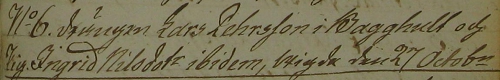 N:o 6. Drängen Lars Pehrsson i Bagghult och
Pig. Ingrid Nilsdotr ibidem, vigda den 27 Octobr